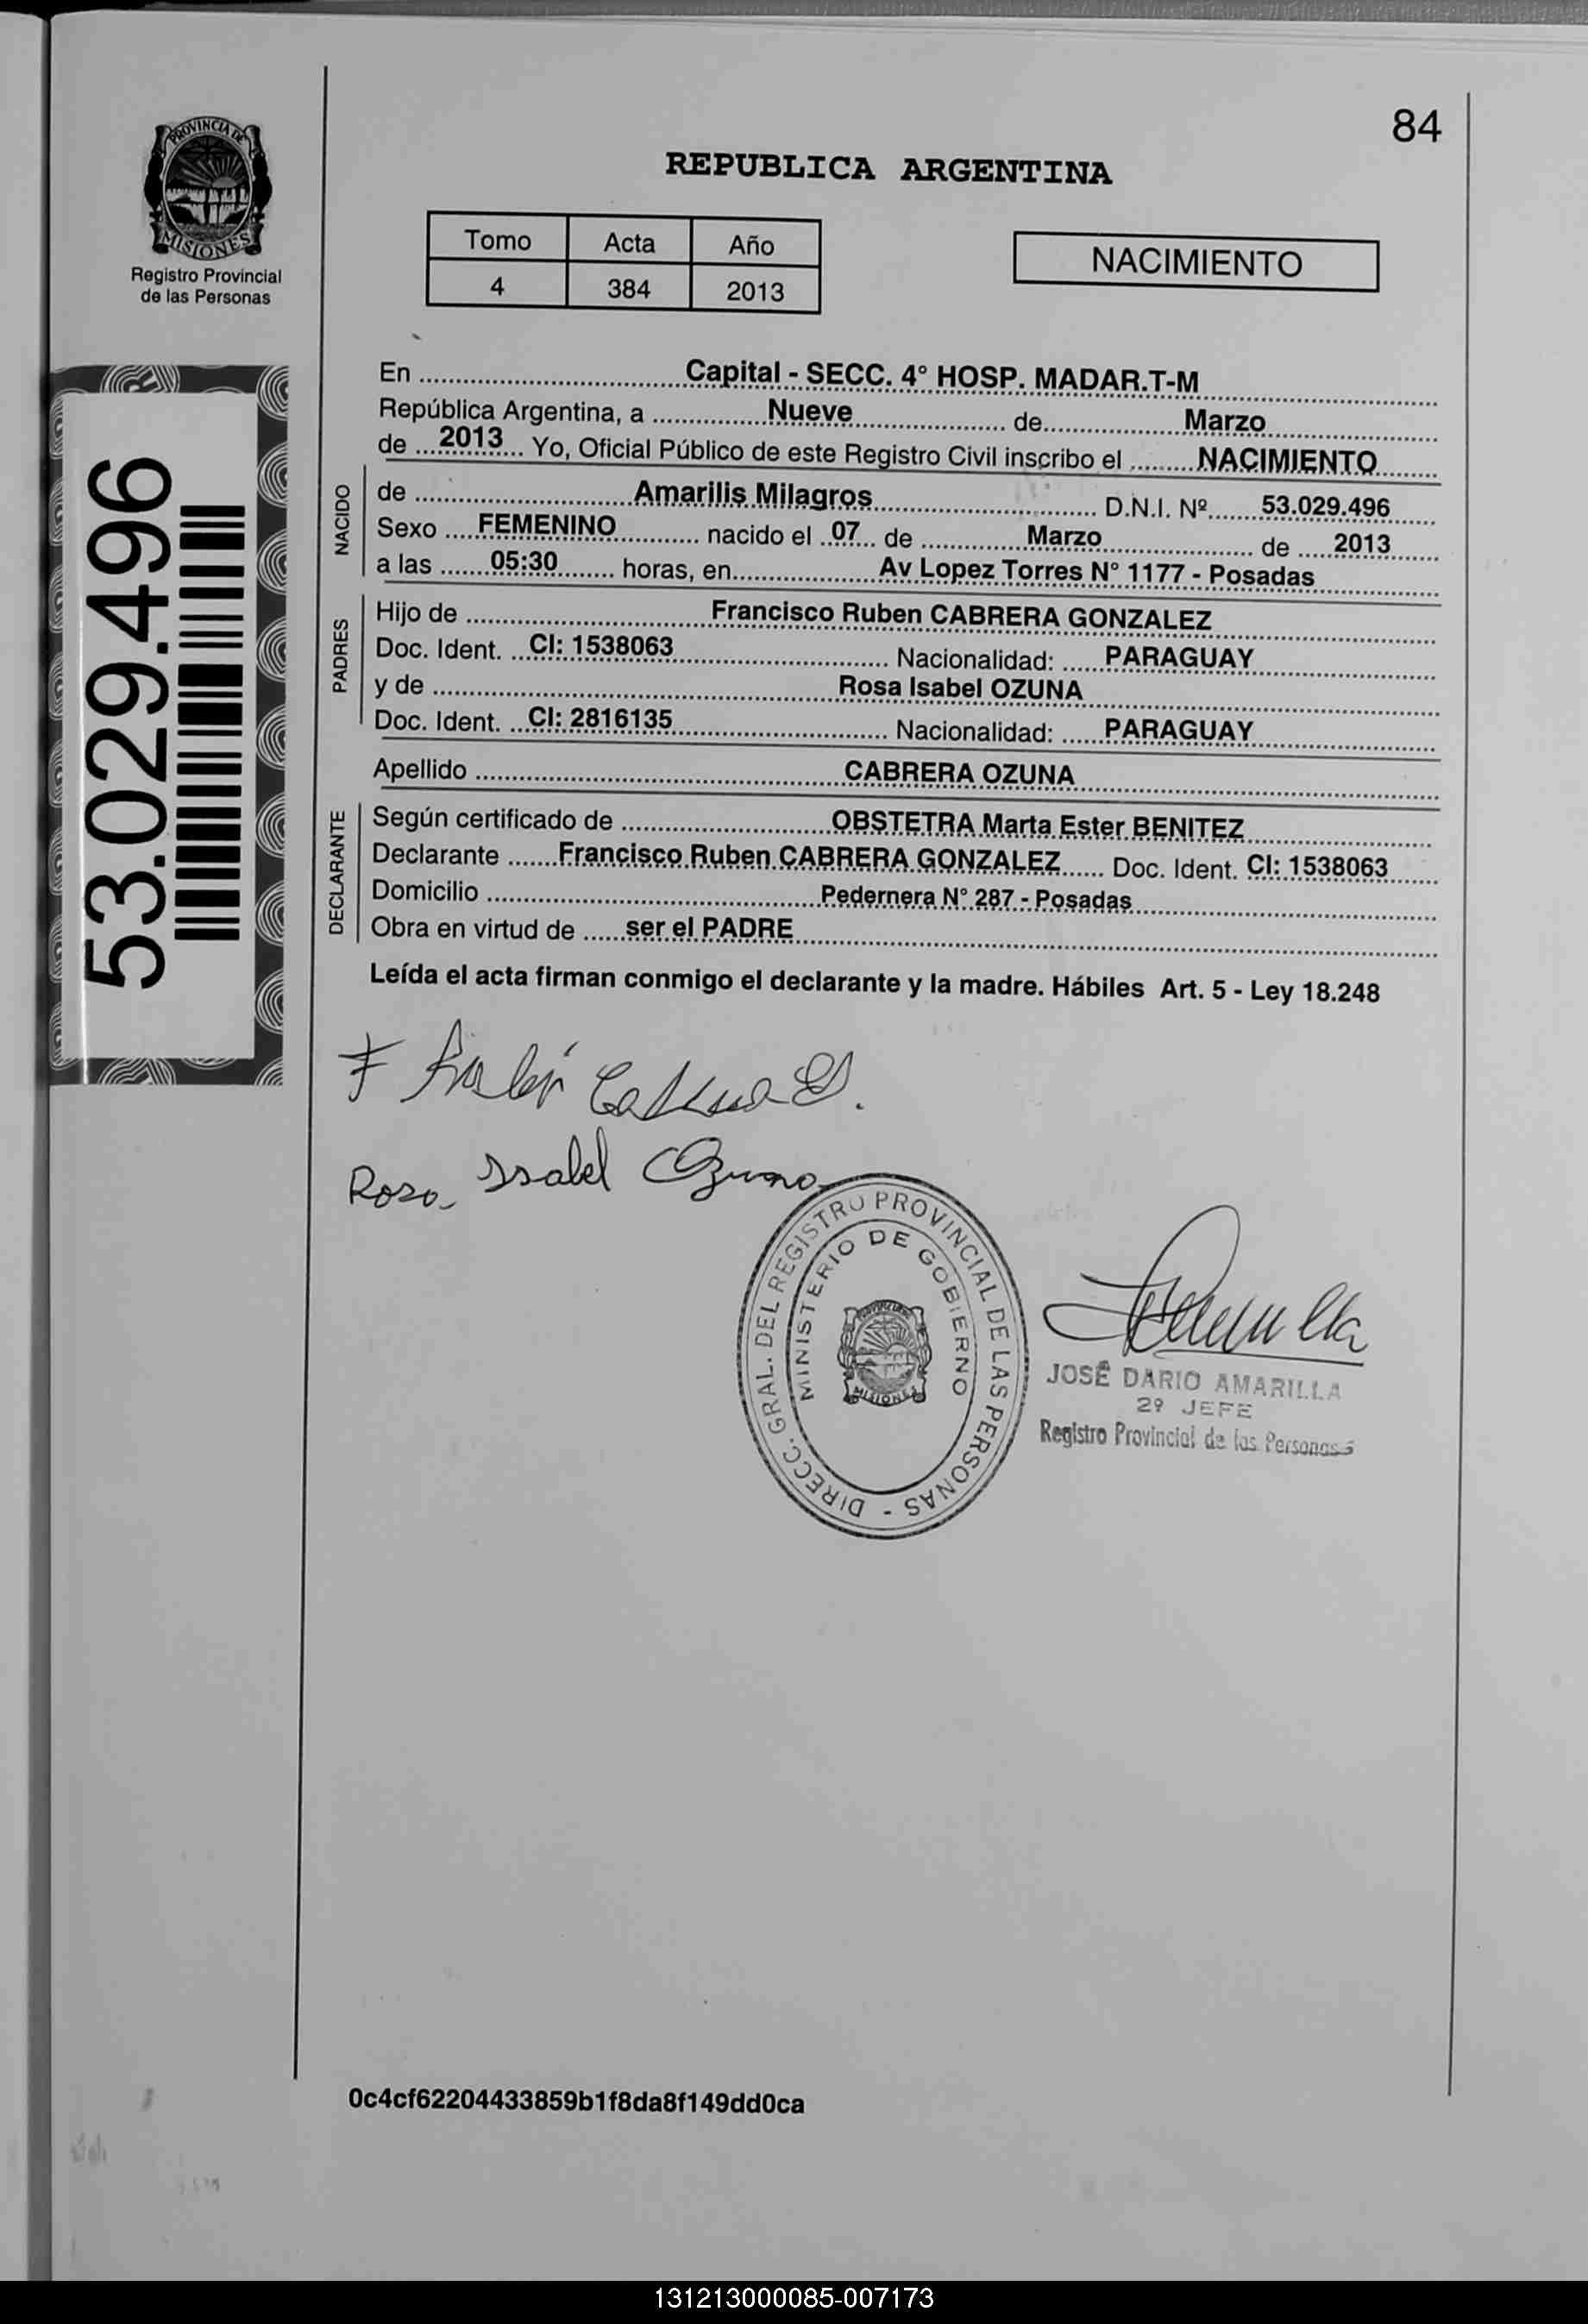 84
PROVINCIA DE
MISIONES
Registro Provincial
de las Personas
REPUBLICA ARGENTINA
Tomo Acta Año
4 384 2013
NACIMIENTO
53.029.496
En Capital - SECC. 4° HOSP. MADAR.T-M
República Argentina, a Nueve de Marzo
de 2013 Yo, Oficial Público de este Registro Civil inscribo el NACIMIENTO
NACIDO
de Amarilis Milagros D.N.I. Nº 53.029.496
Sexo FEMENINO nacido el 07 de Marzo de 2013
a las 05:30 horas, en Av Lopez Torres N° 1177 - Posadas
PADRES
Hijo de Francisco Ruben CABRERA GONZALEZ
Doc. Ident. CI: 1538063 Nacionalidad: PARAGUAY
y de Rosa Isabel OZUNA
Doc. Ident. CI: 2816135 Nacionalidad: PARAGUAY
Apellido CABRERA OZUNA
DECLARANTE
Según certificado de OBSTETRA Marta Ester BENITEZ
Declarante Francisco Ruben CABRERA GONZALEZ Doc. Ident. CI: 1538063
Domicilio Pedernera N° 287 - Posadas
Obra en virtud de ser el PADRE
Leída el acta firman conmigo el declarante y la madre. Hábiles Art. 5 - Ley 18.248
Rosa Isabel Ozuna
DIRECC. GRAL. DEL REGISTRO PROVINCIAL DE LAS PERSONAS -
MINISTERIO DE GOBIERNO
MISIONES
JOSÉ DARIO AMARILLA
2º JEFE
Registro Provincial de las Personas
0c4cf62204433859b1f8da8f149dd0ca
131213000085-007173